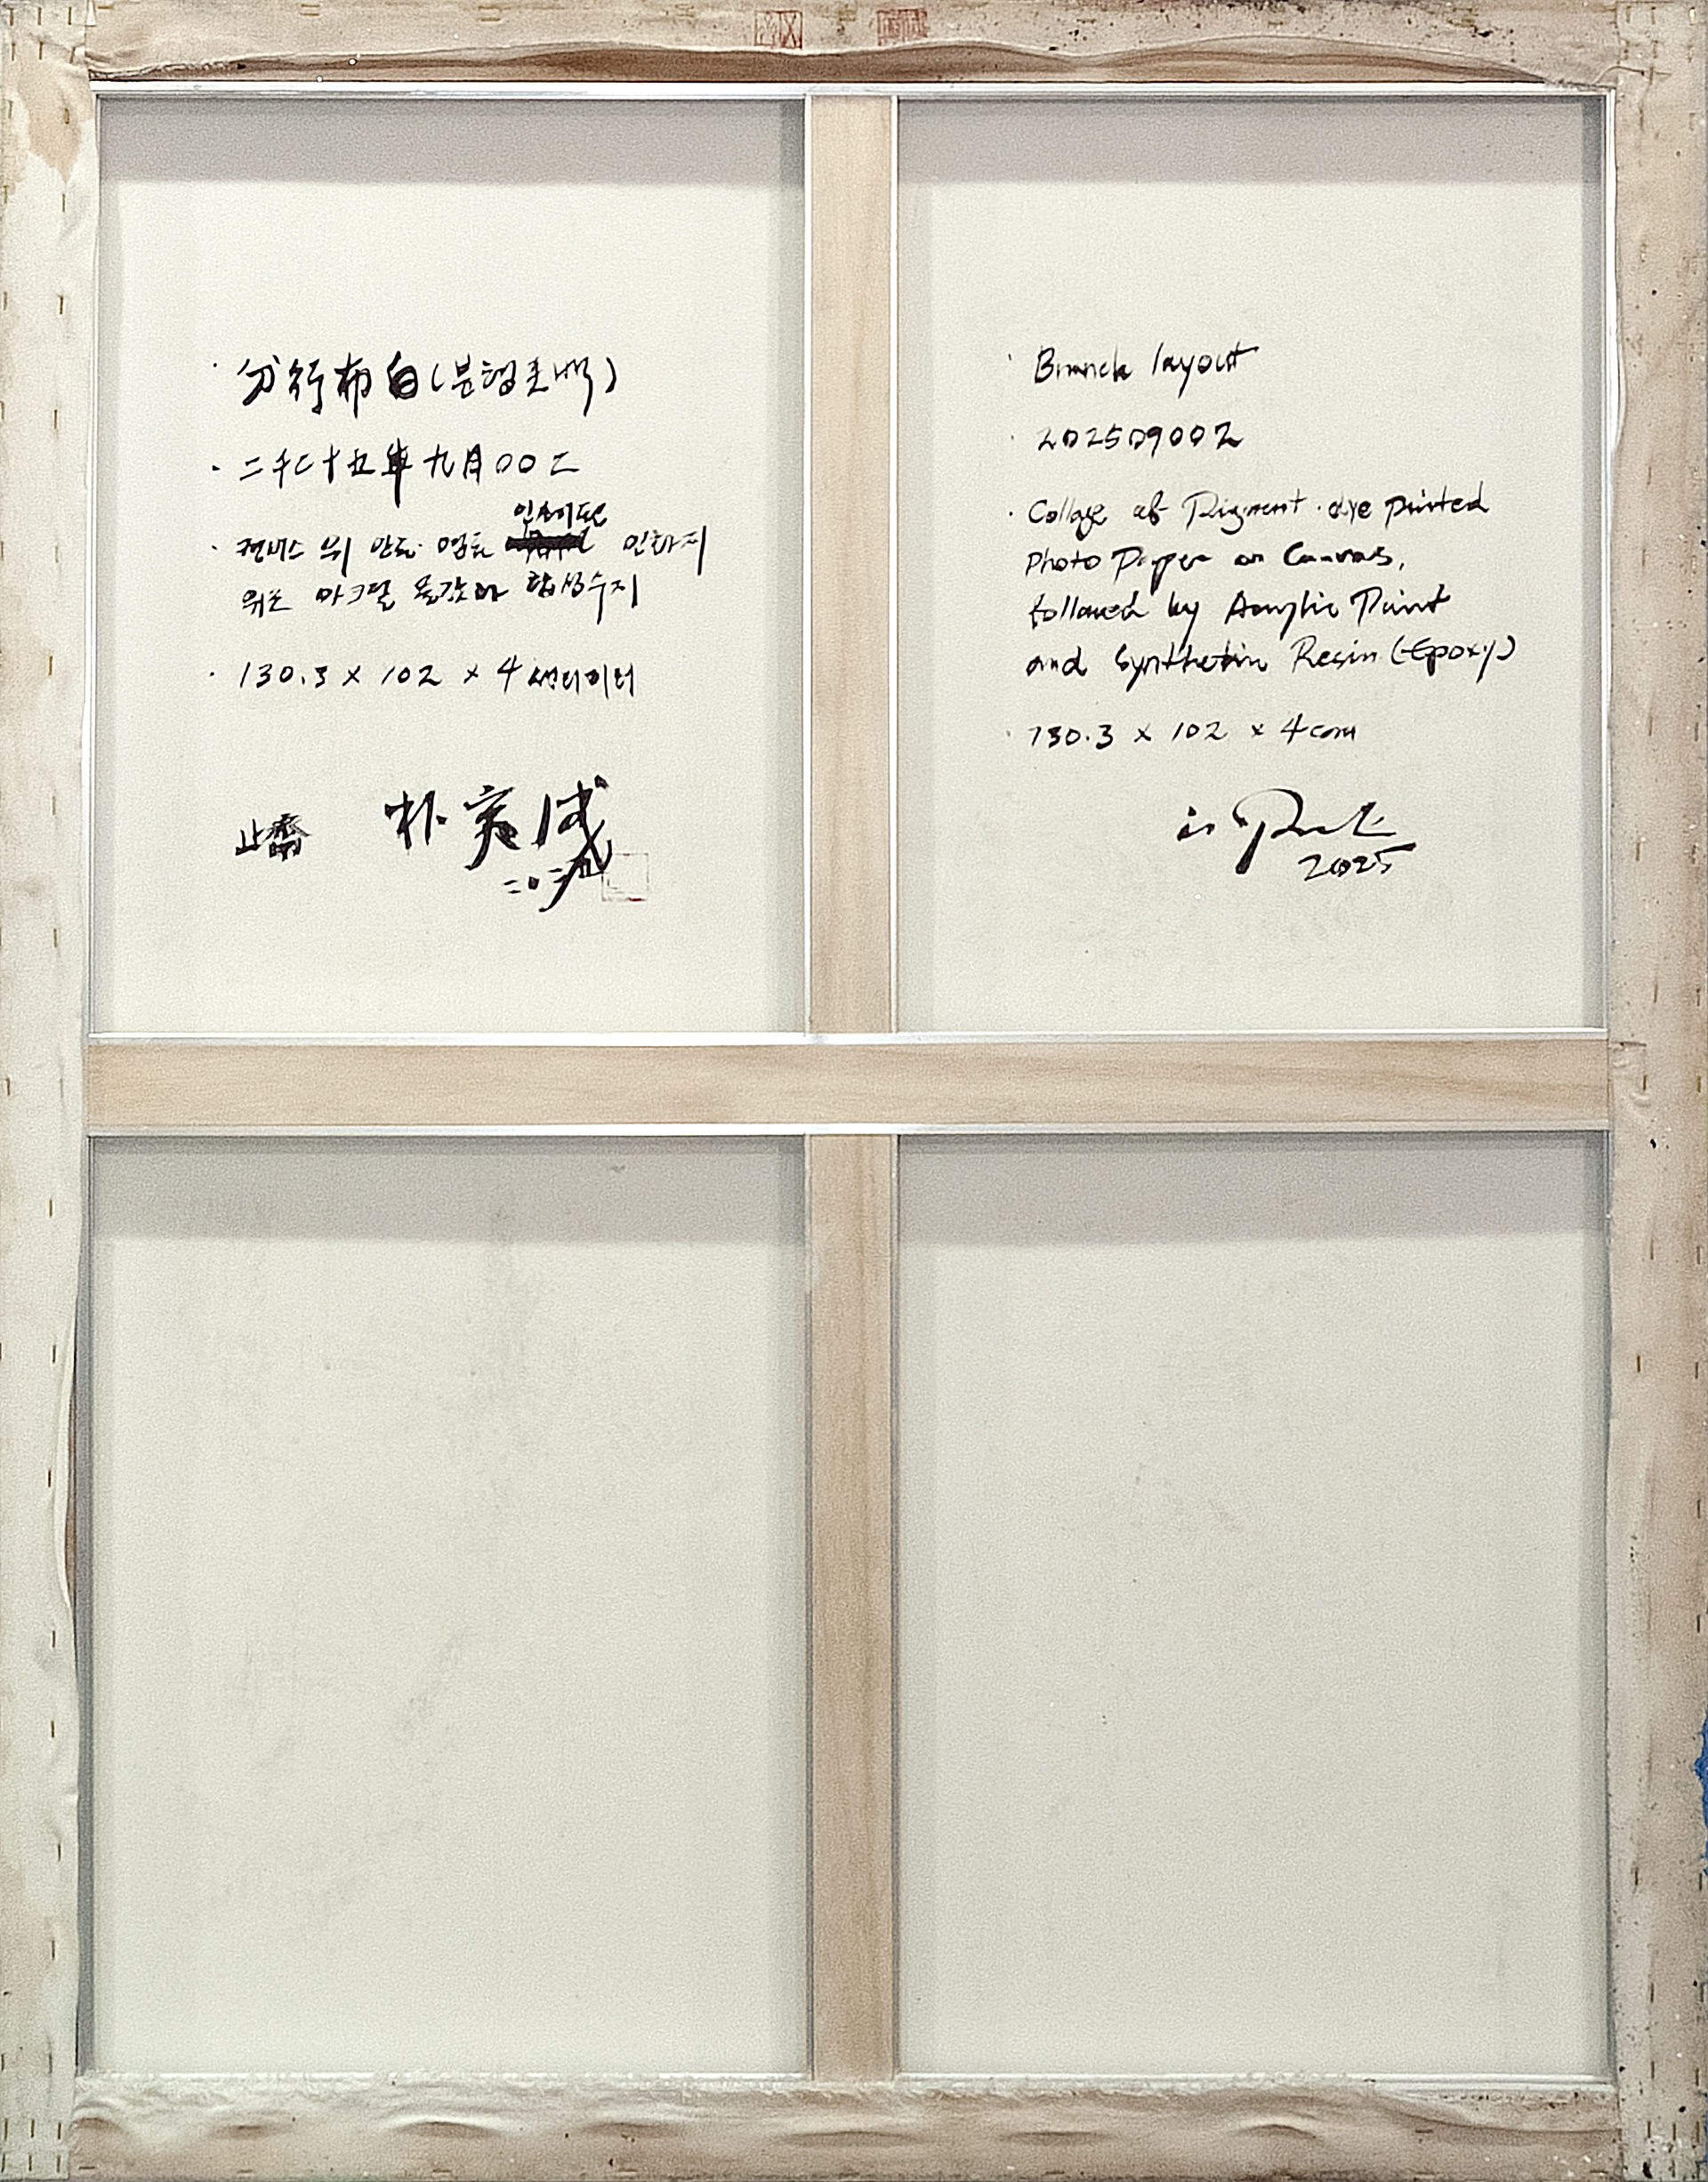 · 分行布白(분행포백)
· 二千二十五年九月00二
인쇄된
· 캔버스 위 안료·염료 인화지
위로 아크릴 물감과 합성수지
· 130.3 x 102 x 4 센티미터
朴寅成
· Branch layout
· 202509002
· Collage of Pigment·dye printed
Photo Paper on Canvas,
followed by Acrylic Paint
and Synthetic Resin (Epoxy)
· 130.3 x 102 x 4cm
is Park
2025